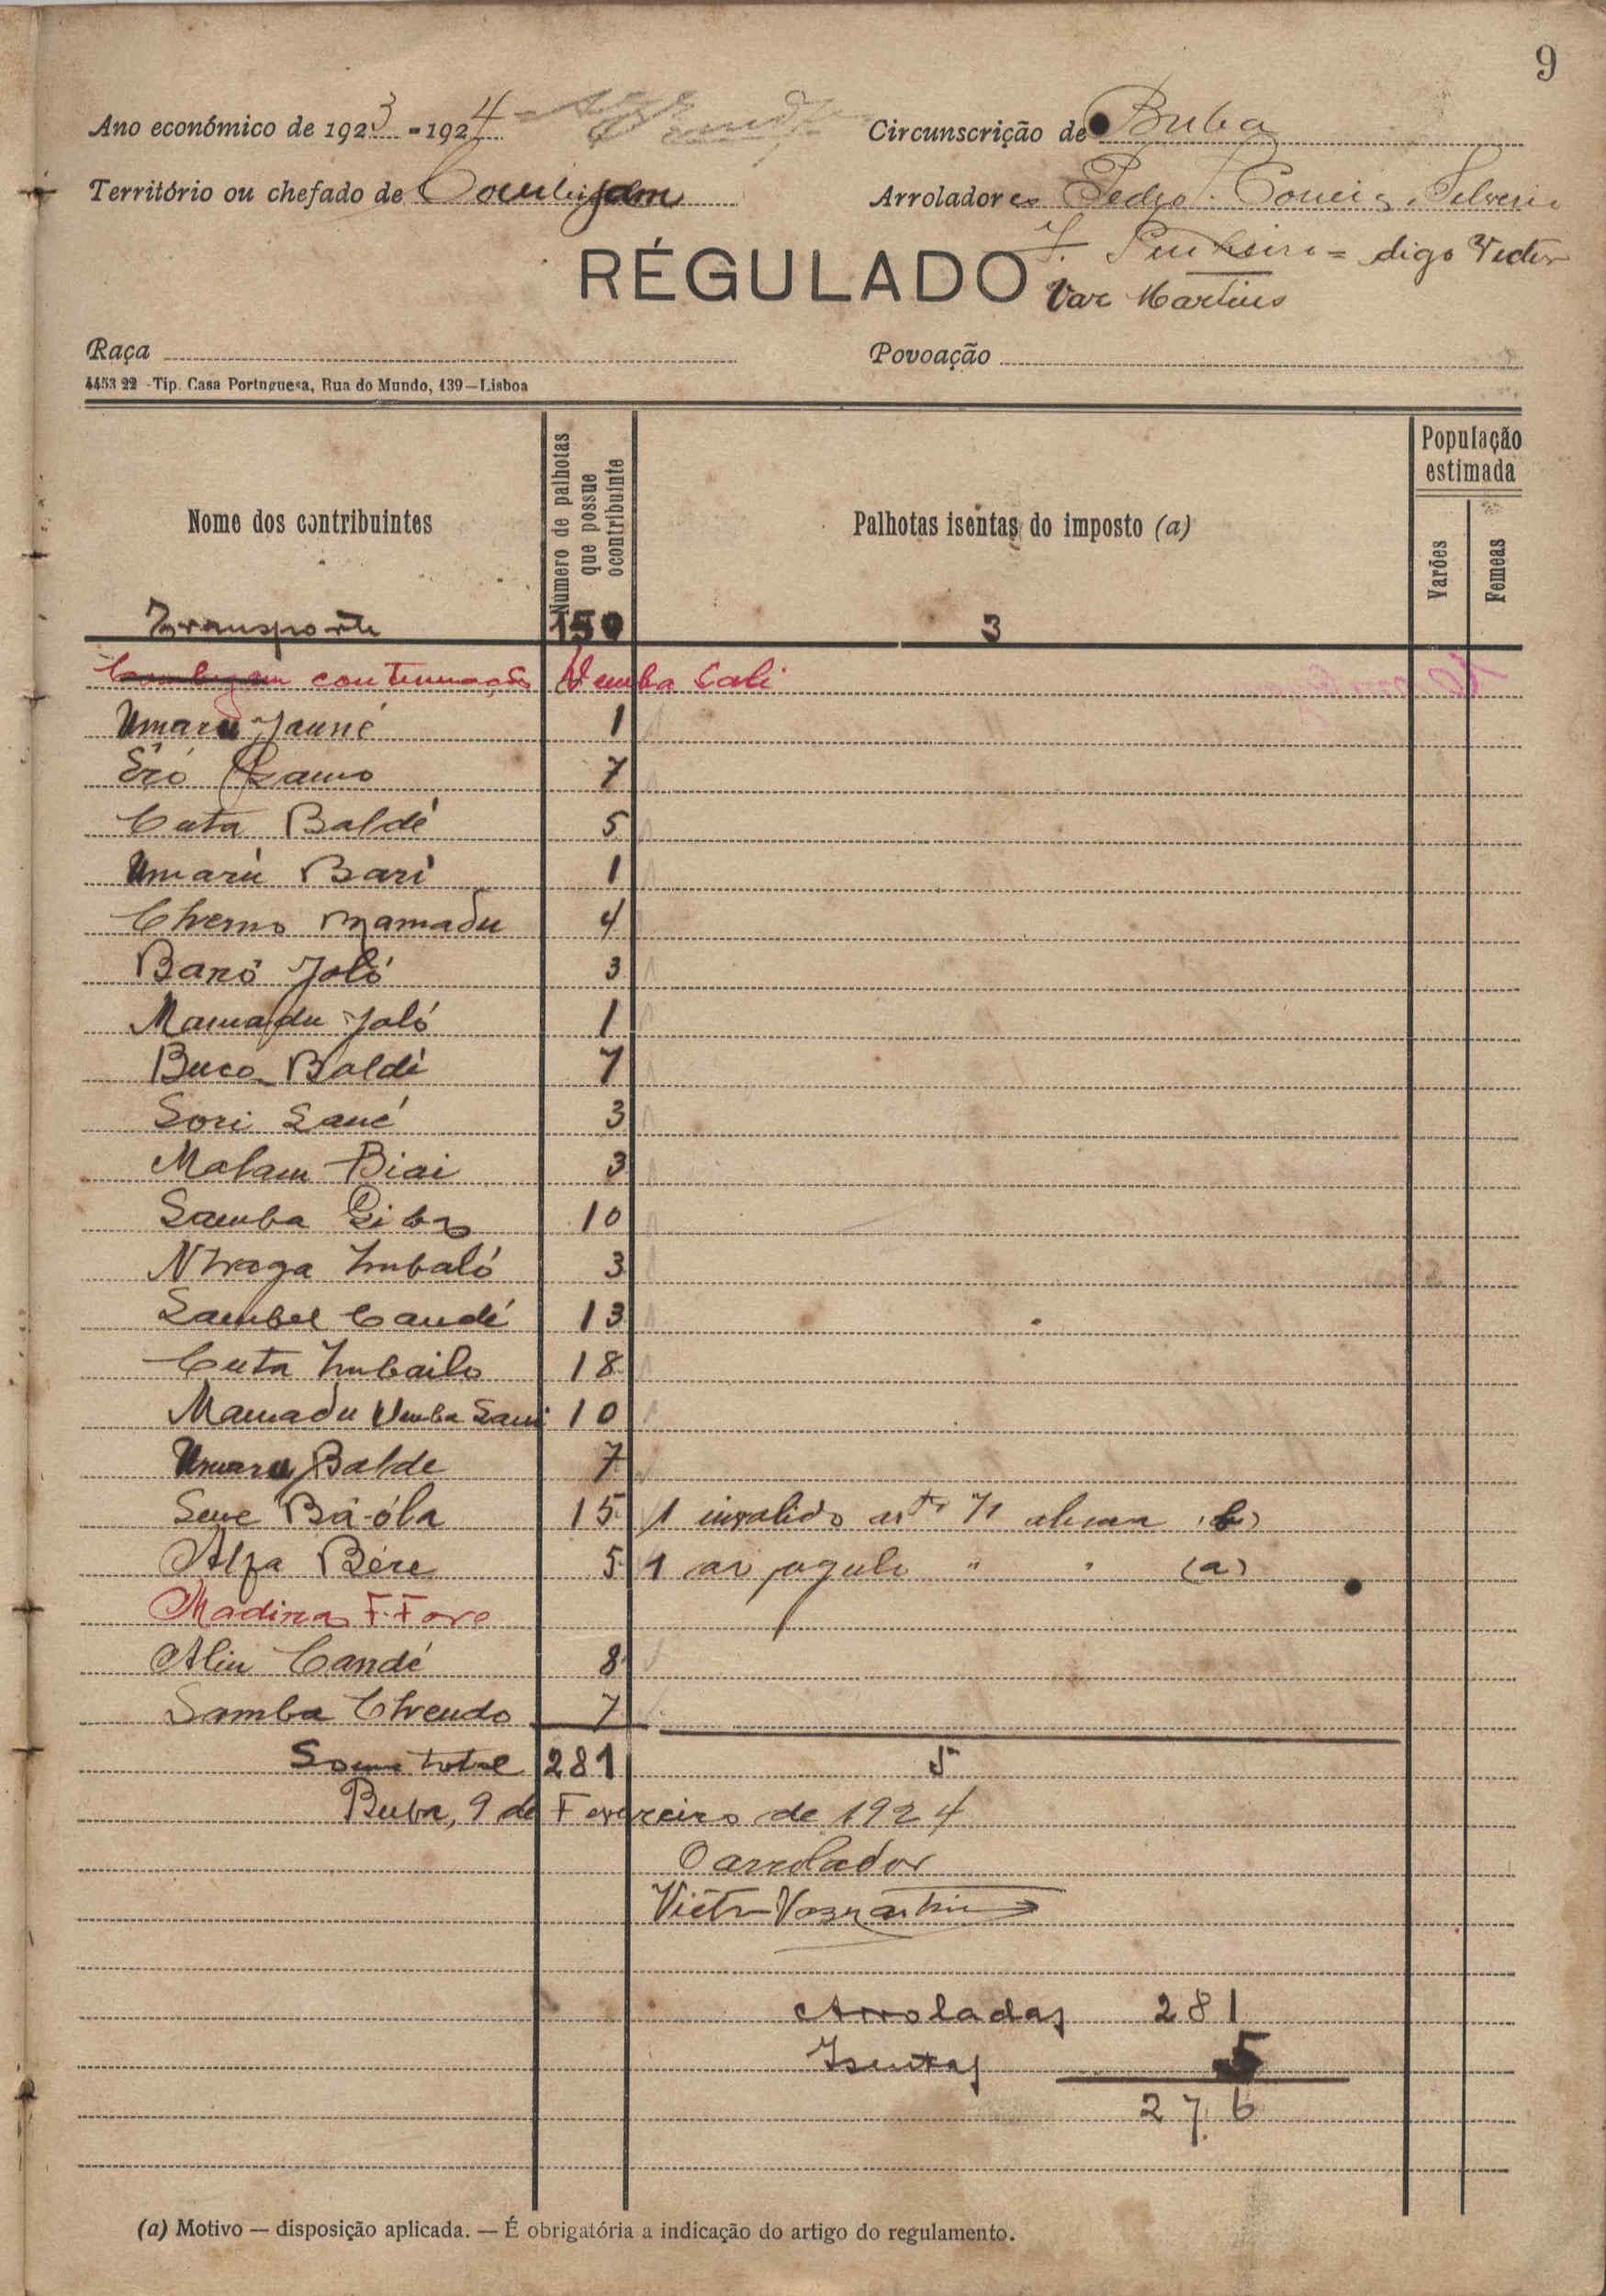 9
Ano económico de 1923 - 1924
Circunscrição de Buba
Território ou chefado de
Arroladores Pedro
digo Victor
RÉGULADO
Vaz Martins
Raça
Povoação
4453 22 - Tip. Casa Portuguesa, Rua do Mundo, 139—Lisboa
Nome dos contribuintes
Número de palhotas que possue ocontribuinte
Palhotas isentas do imposto (a)
População estimada
Varões
Femeas
Transporte 150 3
continuação Demba Cali
Umaru Jauné 1
Eró 7
Cuta Baldé 5
Umarú Bari 1
Cherno Mamadu 4
Baró Jaló 3
Mamadu Jaló 1
Buco Baldé 7
Sori Sané 3
Malam Biai 3
Samba 10
Imbaló 3
Sambel Candé 13
Cuta Imbailo 18
Mamadu Demba Sani 10
Umaru Balde 7
Bá-óla 15 1 invalido artº 71 (b)
Alfa Bére 5 1 " " (a)
Madina F. Foro
Aliu Candé 8
Samba Chendo 7
Soma total 281 5
Buba, 9 de Fevereiro de 1924
O arrolador
Victor Vaz Martins
Arroladas 281
Isentas 5
276
(a) Motivo — disposição aplicada. — É obrigatória a indicação do artigo do regulamento.